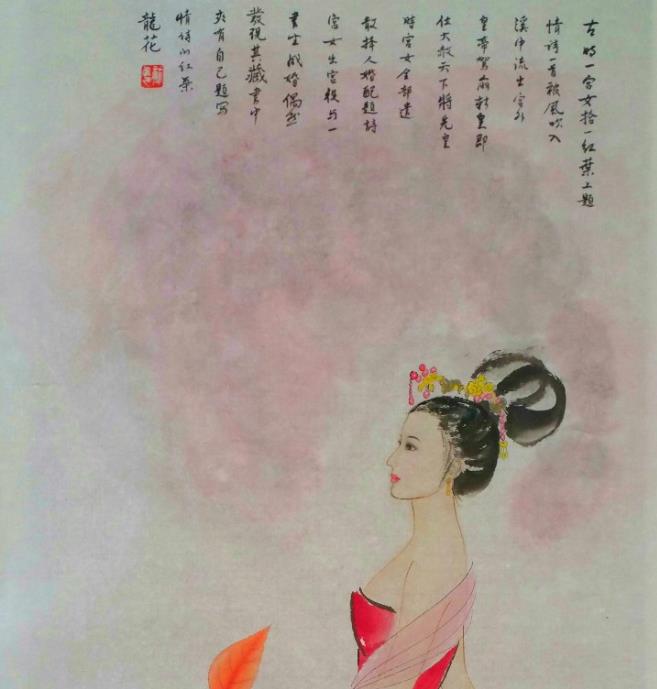 古時一宮女拾一紅葉上題
情詩一首被風吹入
溪中流出宮外
皇帝駕崩新皇即
位大赦天下將先皇
時宮女全部遣
散择人婚配題詩
宮女出宮後与一
書生成婚偶然
發現其藏書中
夾有自己題寫
情诗的红葉
龍花